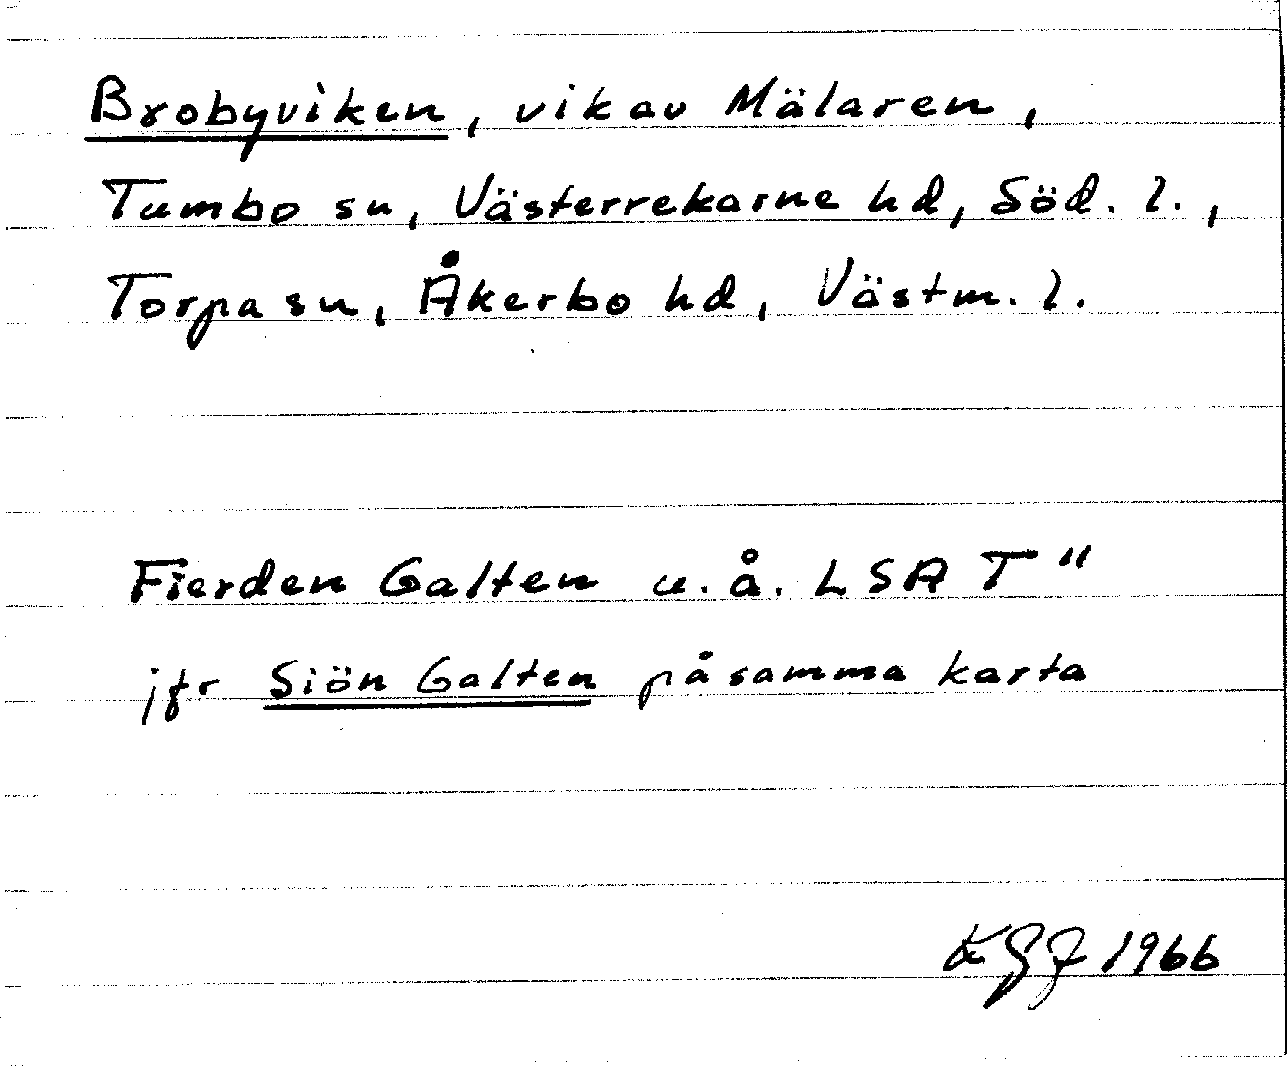 Brobyviken, vik av Mälaren,
Tumbo sn, Västerrekarne hd, Söd. l.,
Torpa sn, Åkerbo hd, Västm. l.
Fierden Galten u. å. LSA T"
jfr Siön Galten på samma karta
1966